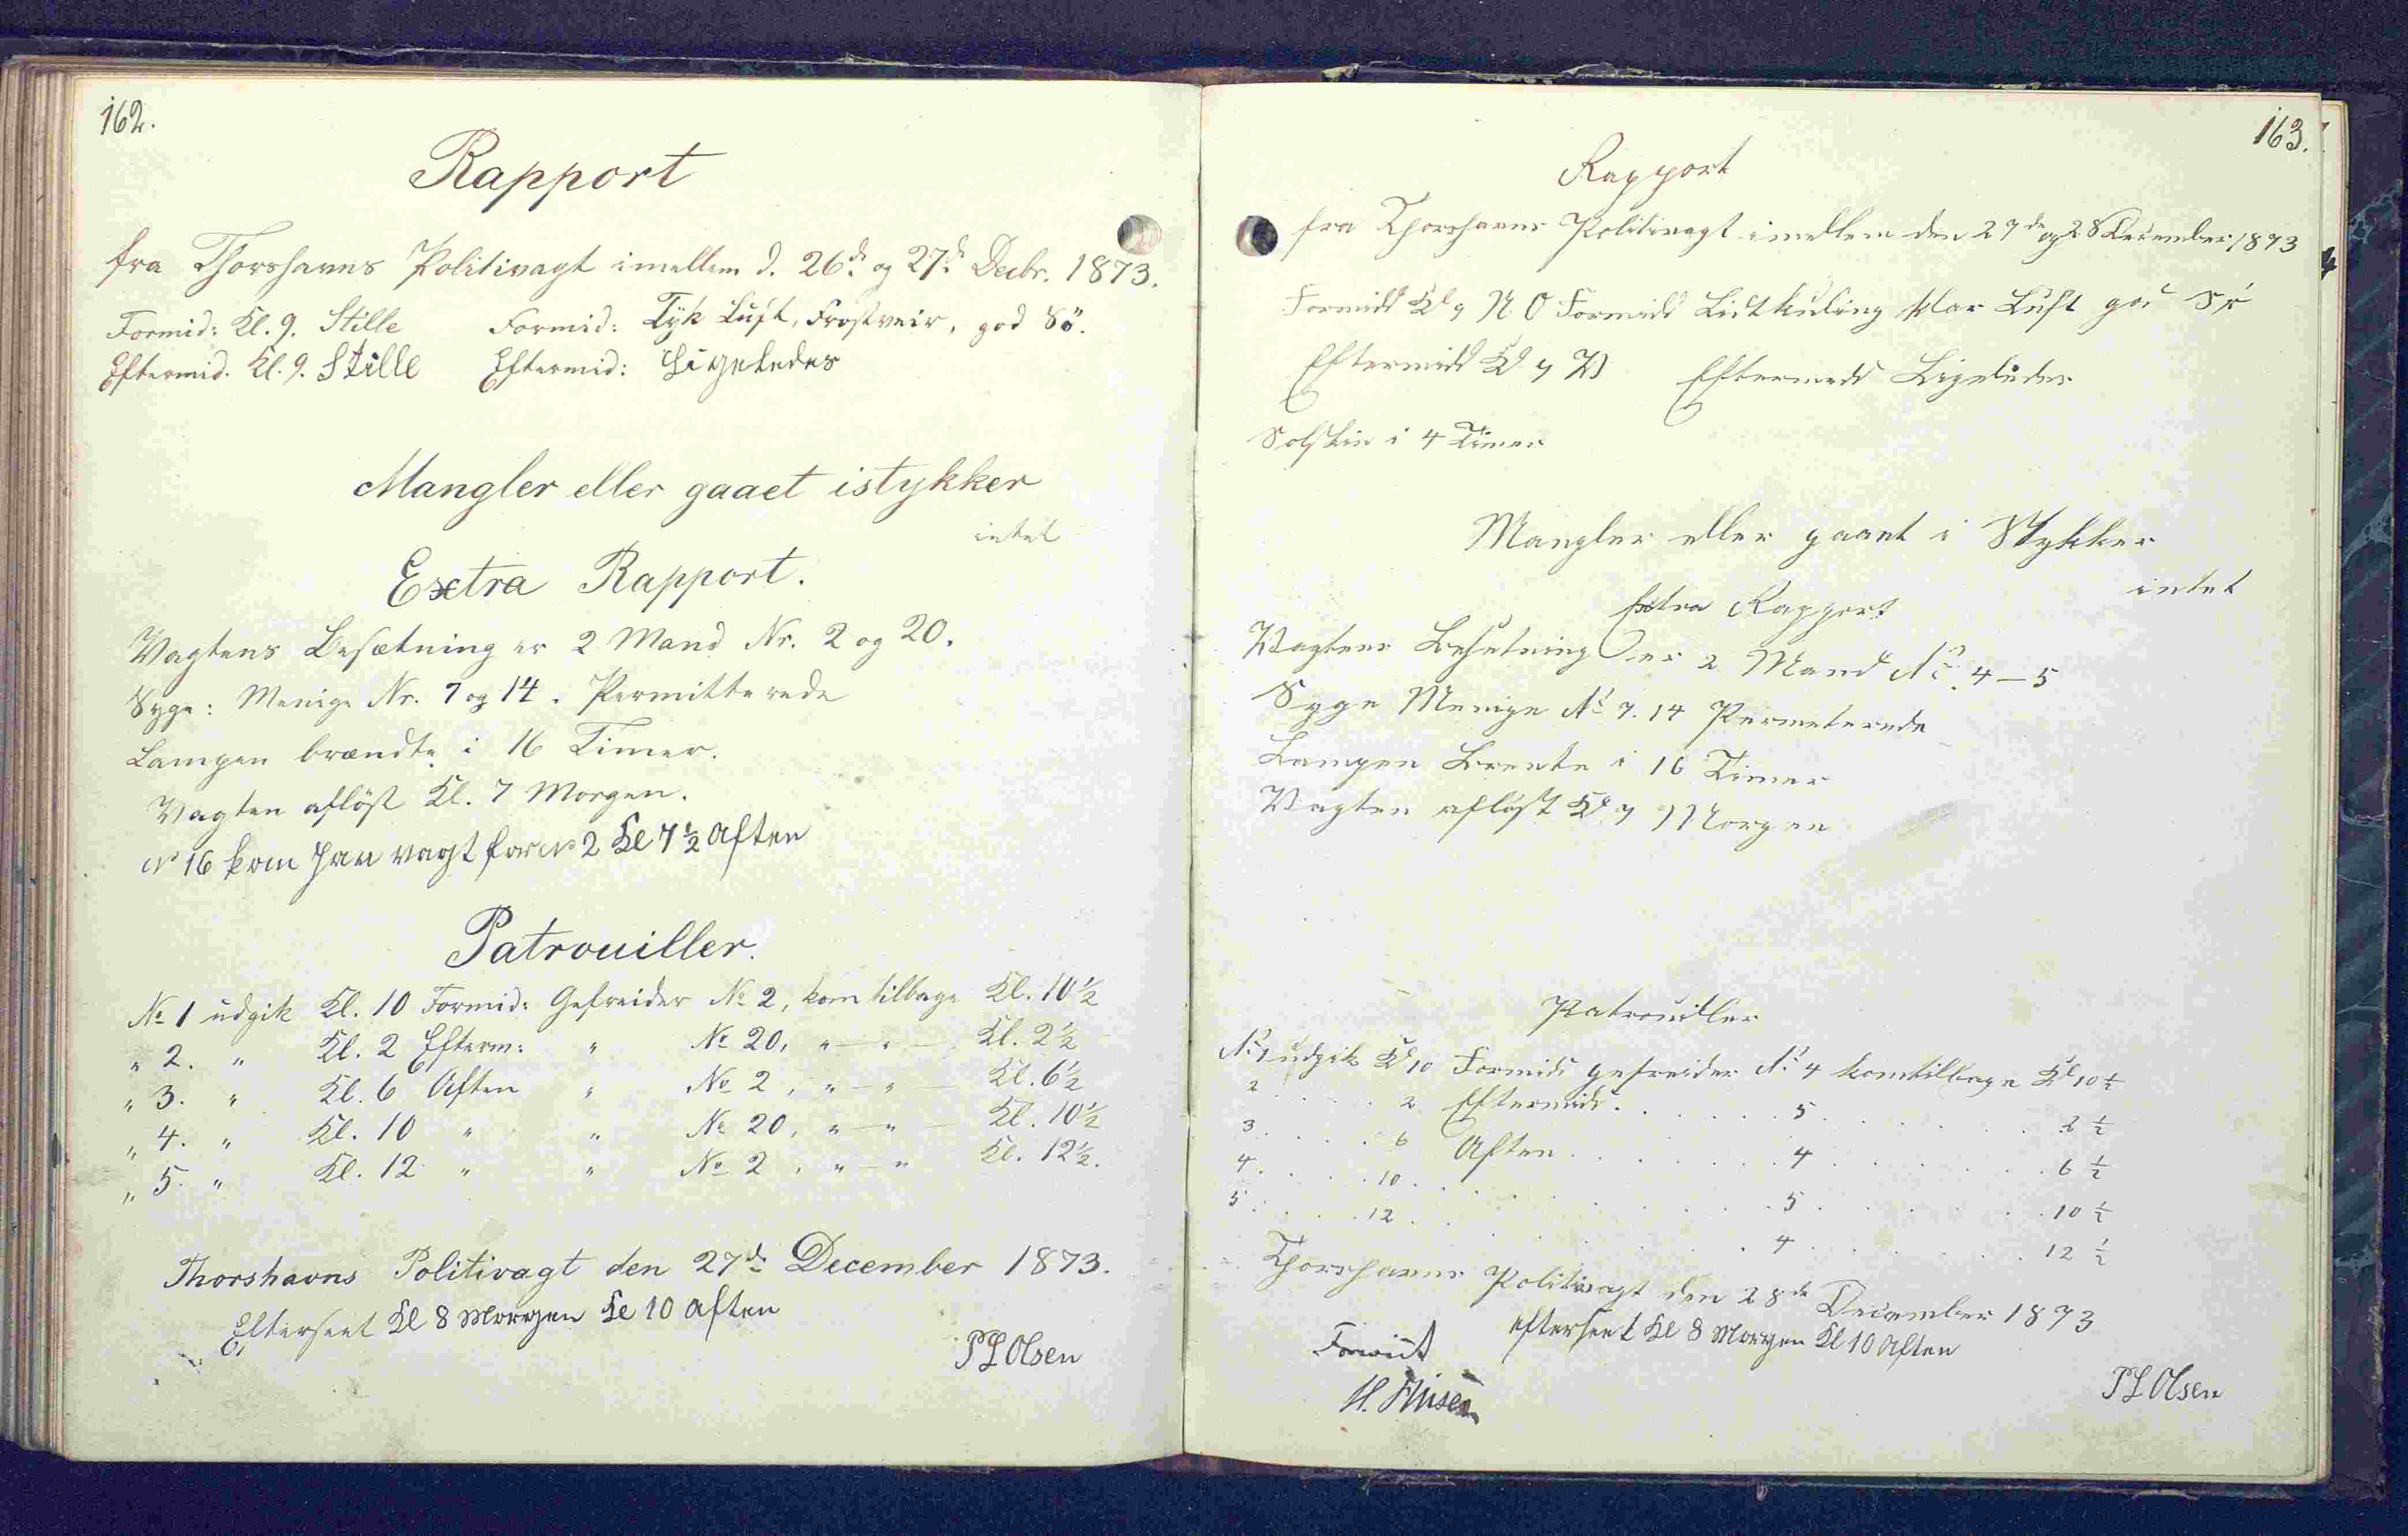 162.
Rapport
fra Thorshavns Politivagt imellem d. 26de og 27de Decbr. 1873.
Formid: Kl. 9. Stille Formid: Tyk Luft, Frostveir, god Sö.
Eftermid. Kl. 9. Stille Eftermid: Ligeledes
Mangler eller gaaet istykker
intet
Extra Rapport.
Vagtens Besætning er 2 Mand Nr. 2 og 20.
Syge: Menige Nr. 7 og 14. Permitterede
Lampen brændte i 16 Timer.
Vagten aflöst Kl. 7 Morgen.
No 16 kom paa vagt for No 2 Kl 7½ Aften
Patrouiller.
No 1 udgik Kl. 10 Formid: Gefreider No 2, kom tilbage Kl. 10½
" 2. " Kl. 2 Efterm: " No 20, " — " — Kl. 2½
" 3. " Kl. 6 Aften " No 2, " — " — Kl. 6½
" 4. " Kl. 10 " " No 20, " — " — Kl. 10½
" 5. " Kl. 12 " " No 2, " — " Kl. 12½.
Thorshavns Politivagt den 27de December 1873.
Efterseet Kl 8 Morgen Kl 10 Aften
P L Olsen
163.
Rapport
fra Thorshavns Politivagt imellem den 27de og 28 December 1873
Formidd Kl 9 N. O Formidd Lidt kuling klar Luft god Sö
Eftermidd Kl 9 W Eftermidd Ligeledes
Solskin i 4 Timer
Mangler eller gaaet i Stykker
intet
Extra Rapport
Vagtens Besetning er 2 Mand No. 4 — 5
Syge Menige No 7. 14 Permeterede
Lampen Brente i 16 Timer
Vagten aflöst Kl 7 Morgen
Patrouiller
No 1 udgik Kl 10 Formidd gefreider No 4 kom tilbage Kl 10½
2 . . . . 2 Eftermidd . . . . . 5 . . . . . . 2½
3 . . . . 6 Aften . . . . . . 4 . . . . . . 6½
4 . . . . 10 . . . . . . . . 5 . . . . . . 10½
5 . . . . 12 . . . . . . . . 4 . . . . . . 12½
Thorshavns Politivagt den 28de December 1873
efterseet Kl 8 Morgen Kl 10 Aften
P L Olsen